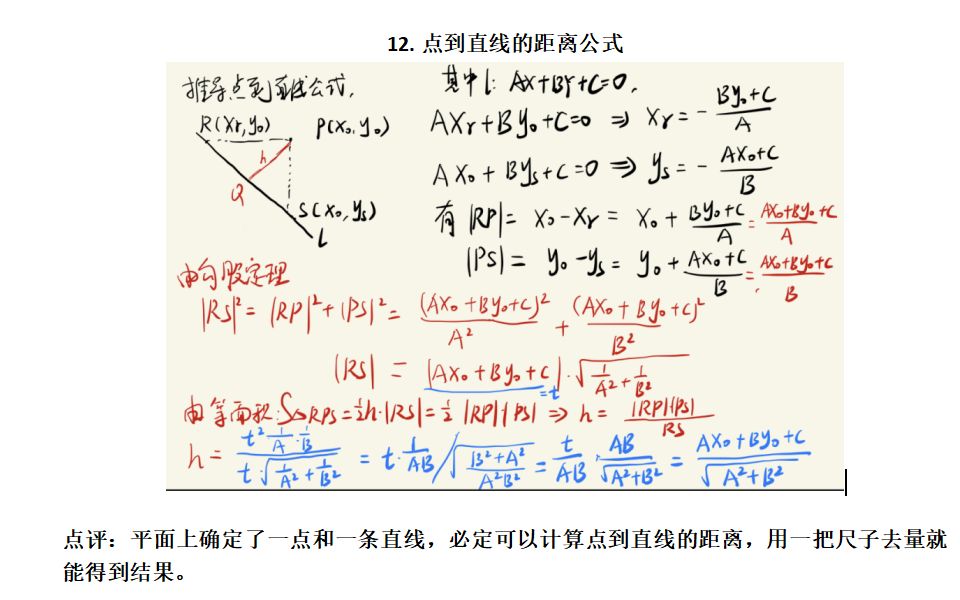 12. 点到直线的距离公式
推导点到直线公式,
其中l: AX+BY+C=0,
R(Xr,y₀) P(X₀,y₀)
h
Q
S(X₀,ys)
L
AXr+By₀+C=0 ⇒ Xr = - (By₀+C)/A
AX₀+Bys+C=0 ⇒ ys = - (AX₀+C)/B
有 |RP| = X₀-Xr = X₀ + (By₀+C)/A = (AX₀+By₀+C)/A
|PS| = y₀-ys = y₀ + (AX₀+C)/B = (AX₀+By₀+C)/B
由勾股定理
|RS|² = |RP|²+|PS|² = (AX₀+By₀+C)²/A² + (AX₀+By₀+C)²/B²
|RS| = |AX₀+By₀+C|·√(1/A²+1/B²)
=t
由等面积: S△RPS = ½h·|RS| = ½|RP||PS| ⇒ h = |RP||PS|/RS
h = (t²·1/A·1/B)/(t·√(1/A²+1/B²)) = t·1/AB/√((B²+A²)/A²B²) = t/AB·AB/√(A²+B²) = (AX₀+By₀+C)/√(A²+B²)
点评：平面上确定了一点和一条直线，必定可以计算点到直线的距离，用一把尺子去量就
能得到结果。